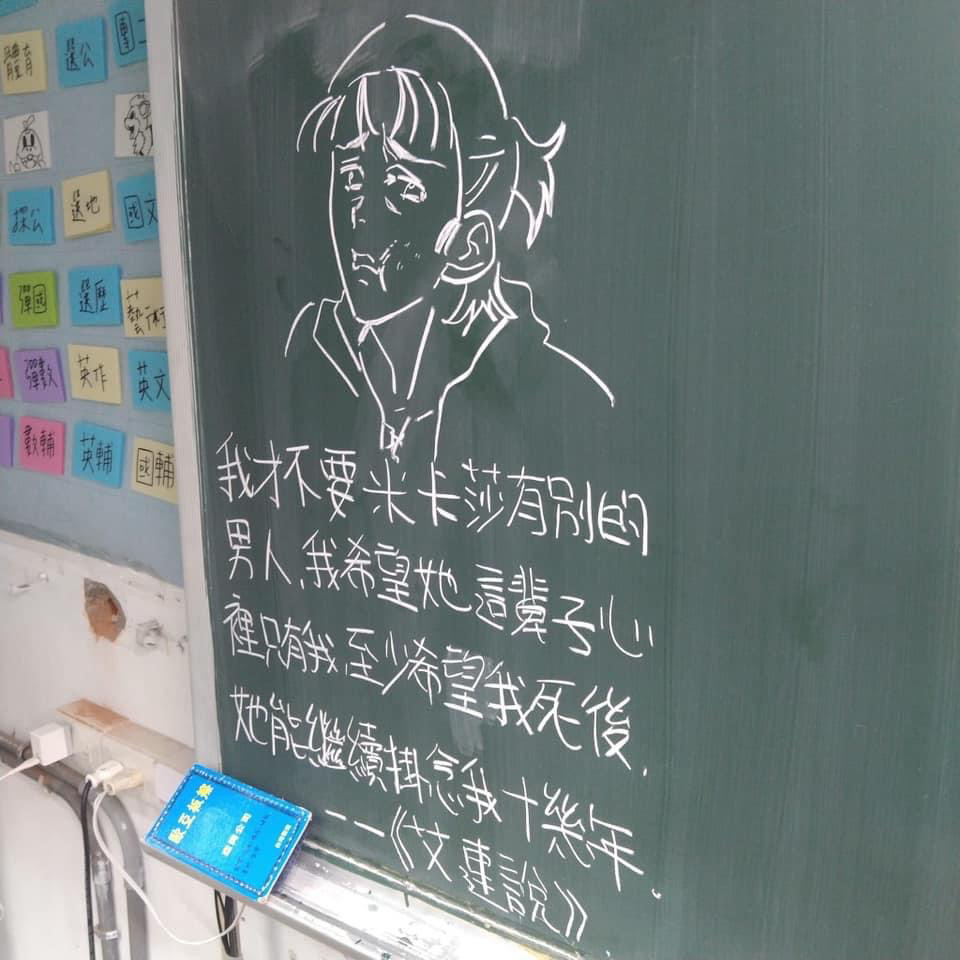 體育
選公
團一
探公
選地
國文
彈國
選歷
藝術
彈數
英作
英文
數輔
英輔
國輔
我才不要米卡莎有別的
男人,我希望她這輩子心
裡只有我,至少希望我死後,
她能繼續掛念我十幾年.
——《艾連說》
歐亞板擦